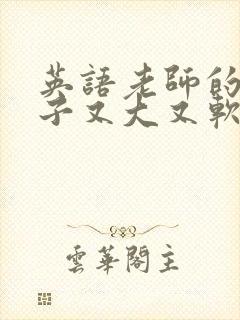 英語老師的
子又大又軟
雲華閣主